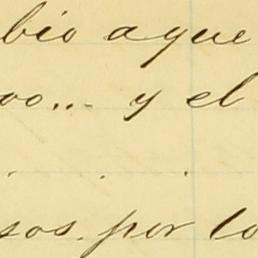 bio aque
oo... y el
. . .
sos. por lo